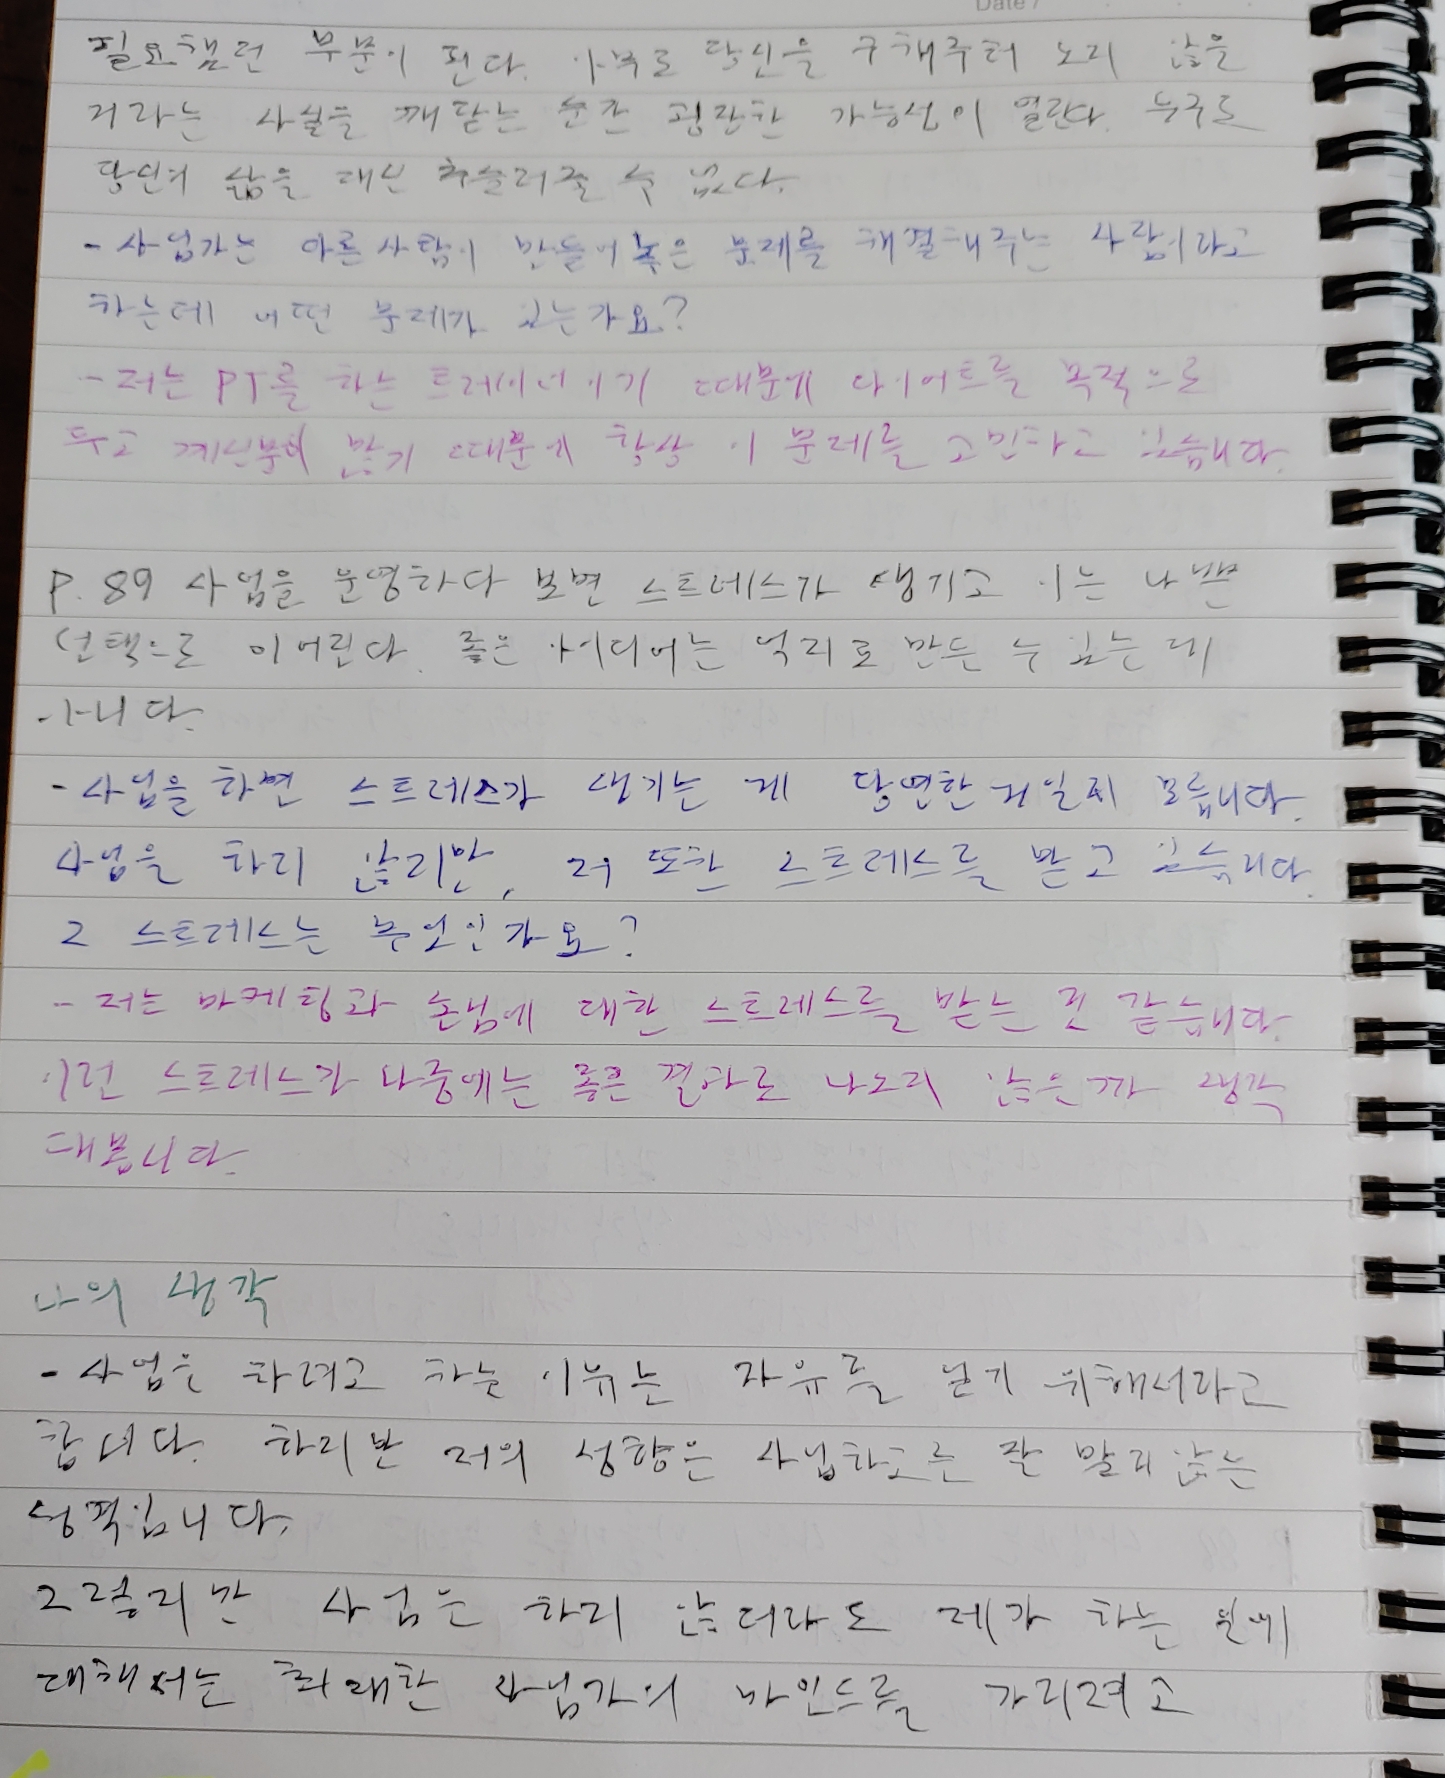 Date /
필요했던 부분이 된다. 아무도 당신을 구해주러 오지 않을
거라는 사실을 깨닫는 순간 굉장한 가능성이 열린다. 누구도
당신의 삶을 대신 추슬러줄 수 없다.
- 사업가는 다른 사람이 만들어 놓은 문제를 해결해주는 사람이라고
하는데 어떤 문제가 있는가요?
- 저는 PT를 하는 트레이너이기 때문에 다이어트를 목적으로
두고 계신분이 많기 때문에 항상 이 문제를 고민하고 있습니다.
P. 89 사업을 운영하다 보면 스트레스가 생기고 이는 나쁜
선택으로 이어진다. 좋은 아이디어는 억지로 만든 수 있는 게
아니다.
- 사업을 하면 스트레스가 생기는 게 당연한 거일지 모릅니다.
사업을 하지 않지만, 저 또한 스트레스를 받고 있습니다.
그 스트레스는 무엇인가요?
- 저는 마케팅과 손님에 대한 스트레스를 받는 것 같습니다.
이런 스트레스가 나중에는 좋은 결과로 나오지 않을까 생각
해봅니다.
나의 생각
- 사업을 하려고 하는 이유는 자유를 얻기 위해서라고
합니다. 하지만 저의 성향은 사업하고는 잘 맞지 않는
성격입니다.
그렇지만 사업은 하지 않더라도 제가 하는 일에
대해서는 최대한 사업가의 마인드를 가지려고